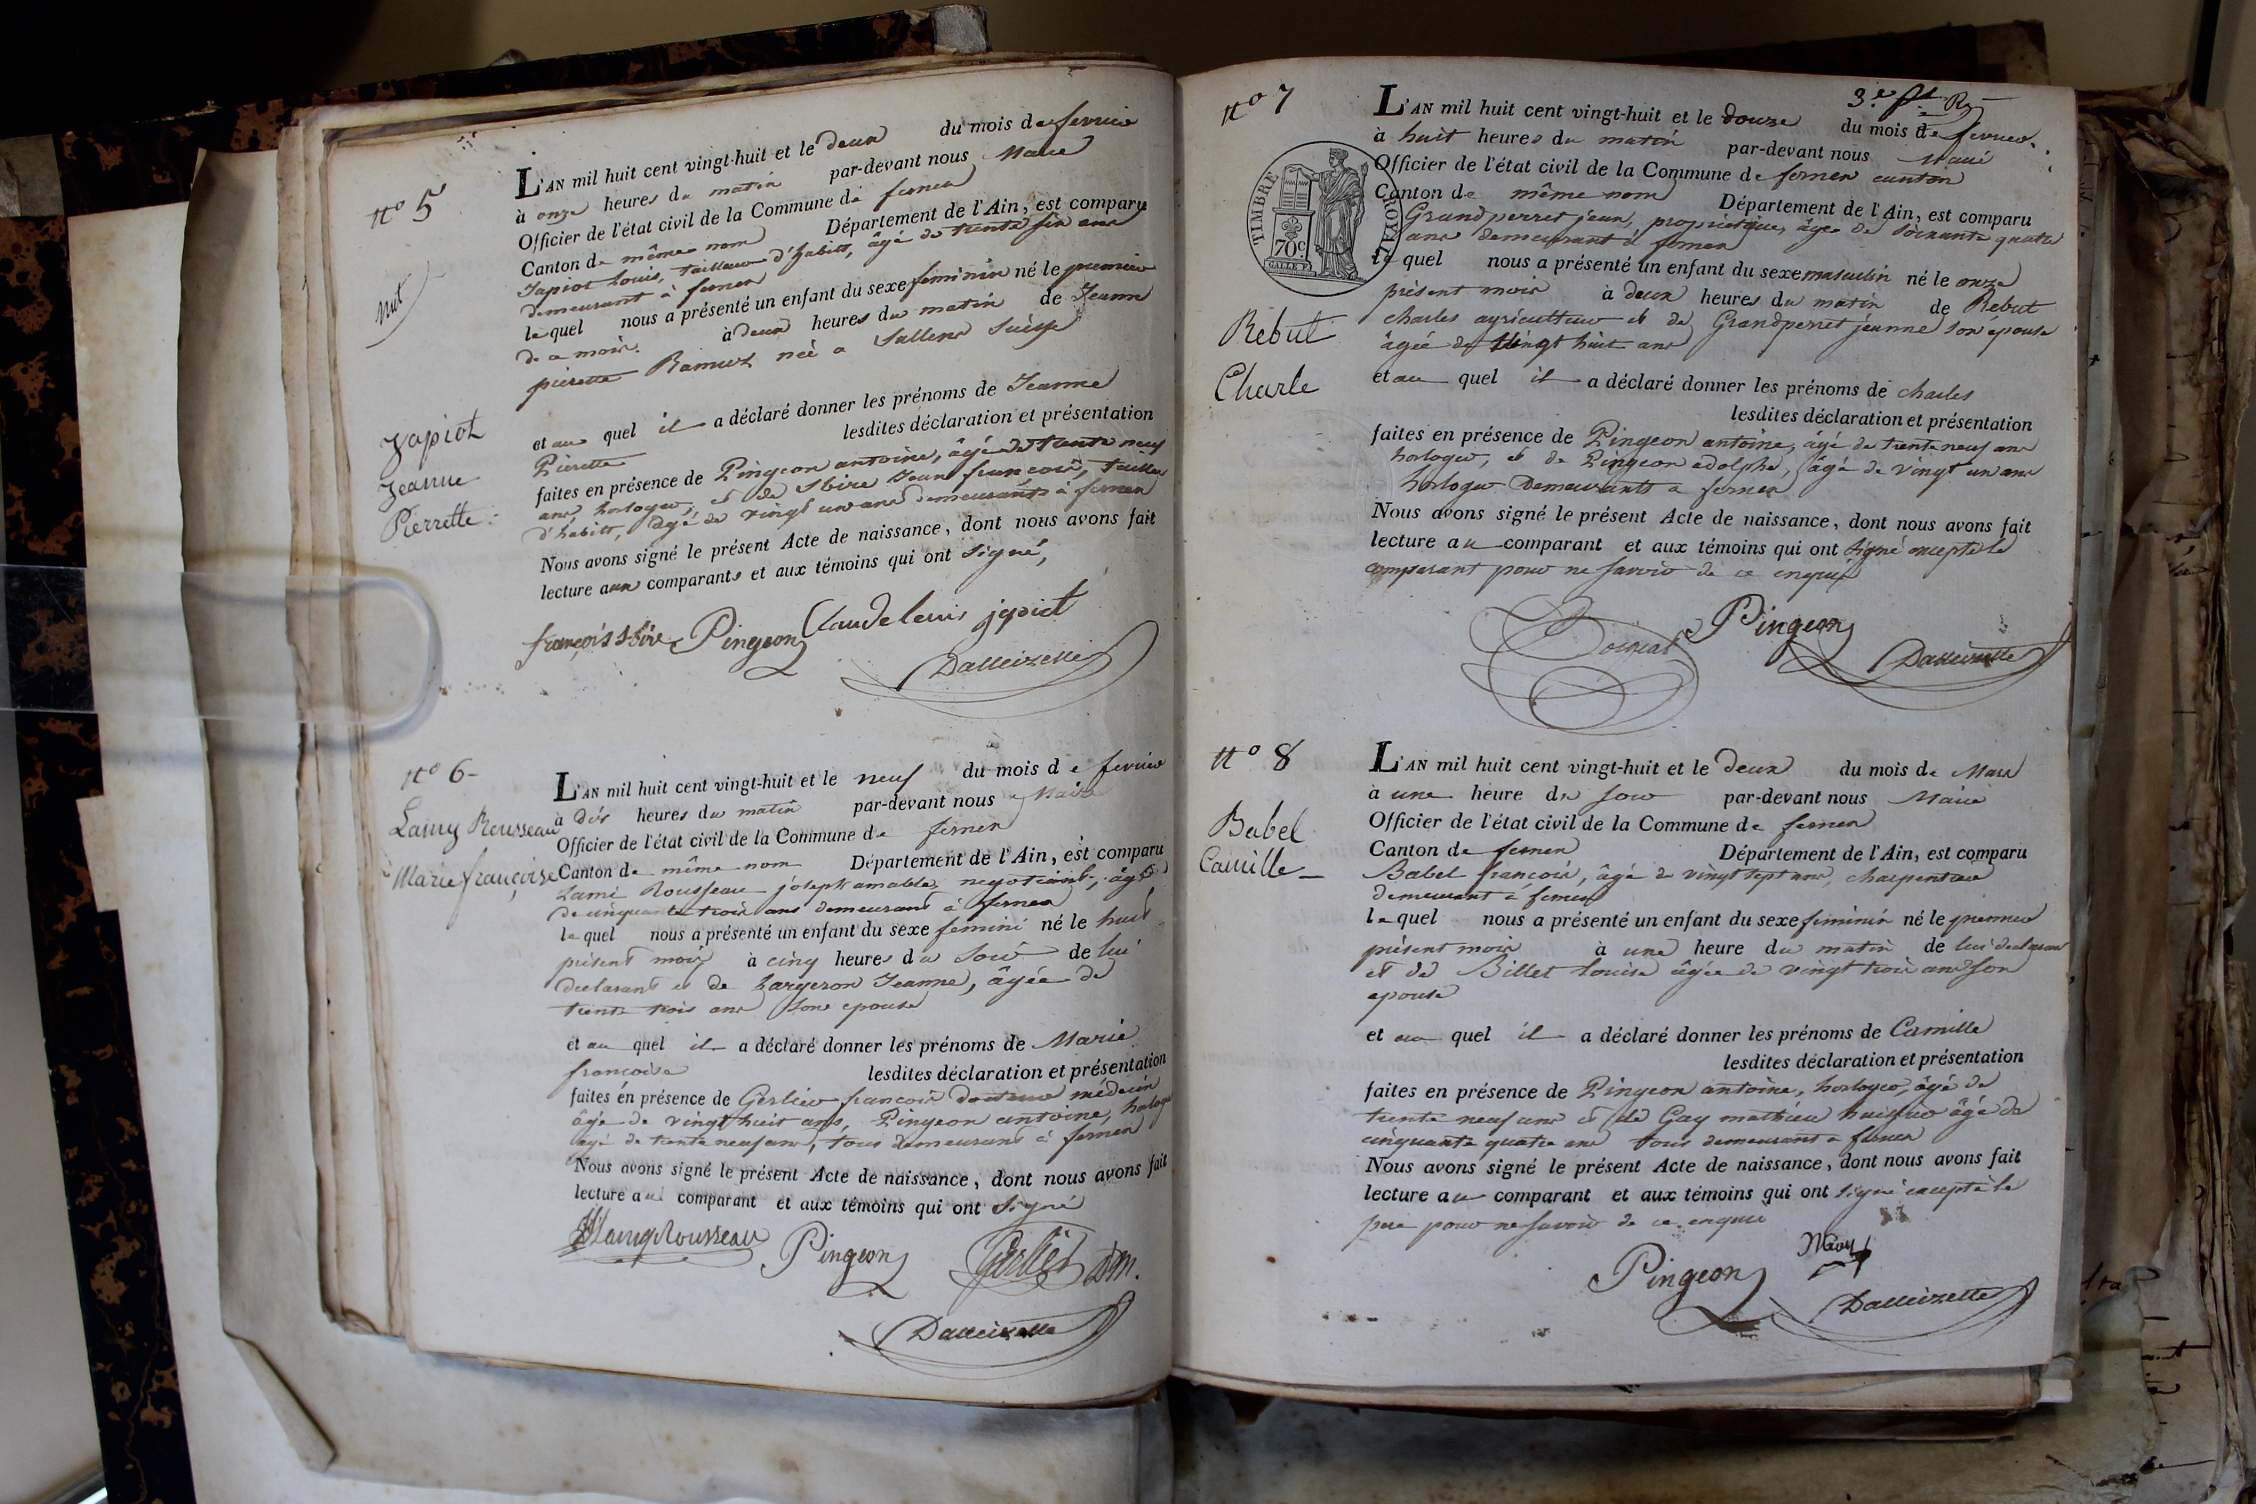 n° 5
nat
Japiot
Jeanne
Pierrette
L'AN mil huit cent vingt-huit et le deux du mois de fevrier
à onze heures du matin par-devant nous Maire
Officier de l'état civil de la Commune de ferney
Canton de même nom Département de l'Ain, est comparu
Japiot Louis, tailleur d'habits, âgé de trente six ans
demeurant à ferney
lequel nous a présenté un enfant du sexe feminin né le premier
de ce mois à deux heures du matin de Jeanne
pierrette Ramuz née a Sullens Suisse
et au quel il a déclaré donner les prénoms de Jeanne
Pierette lesdites déclaration et présentation
faites en présence de Pingeon antoine, âgé de trente neuf
ans horloger, et de Sbire Jean françois, tailleur
d'habits, âgé de vingt un ans demeurants à ferney
Nous avons signé le présent Acte de naissance, dont nous avons fait
lecture aux comparants et aux témoins qui ont signé,
françois Sbire Pingeon Claude Louis japiot
Dalleizette
n° 6
Lamy Rousseau
Marie françoise
L'AN mil huit cent vingt-huit et le neuf du mois de fevrier
à dix heures du matin par-devant nous Maire
Officier de l'état civil de la Commune de ferney
Canton de même nom Département de l'Ain, est comparu
Lami Rousseau joseph amable, negotiant, âgé
de cinquante trois ans demeurant à ferney
lequel nous a présenté un enfant du sexe femini né le huit
présent mois à cinq heures du soir de lui
declarant et de Largeron Jeanne, âgée de
trente trois ans son epouse
et au quel il a déclaré donner les prénoms de Marie
francoise lesdites déclaration et présentation
faites en présence de Gerlier francois docteur médecin
âgé de vingt huit ans, Pingeon antoine, horloger
agé de trente neuf ans, tous demeurant à ferney
Nous avons signé le présent Acte de naissance, dont nous avons fait
lecture au comparant et aux témoins qui ont signé
Lamy Rousseau Pingeon Gerlier DM.
Dalleizette
n° 7
3.e
TIMBRE ROYAL
70 c.
Rebut
Charle
L'AN mil huit cent vingt-huit et le douze du mois de fevrier
à huit heures du matin par-devant nous Maire
Officier de l'état civil de la Commune de ferney canton
Canton de même nom Département de l'Ain, est comparu
Grandperret jean, propriétaire, âgé de soixante quatre
ans demeurant à ferney
lequel nous a présenté un enfant du sexe masculin né le onze
présent mois à deux heures du matin de Rebut
charles agriculteur et de Grandperret jeanne son epouse
âgée de vingt huit ans
et au quel il a déclaré donner les prénoms de charles
lesdites déclaration et présentation
faites en présence de Pingeon antoine, âgé de trente neuf ans
horloger, et de Pingeon adolphe, âgé de vingt un ans
horloger demeurants a ferney
Nous avons signé le présent Acte de naissance, dont nous avons fait
lecture au comparant et aux témoins qui ont signé excepté le
comparant pour ne savoir de ce enquis
Pingeon
Dalleizette
n° 8
Babel
Camille
L'AN mil huit cent vingt-huit et le deux du mois de Mars
à une heure du soir par-devant nous Maire
Officier de l'état civil de la Commune de ferney
Canton de ferney Département de l'Ain, est comparu
Babel françois, âgé de vingt sept ans, charpentier
demeurant à ferney
lequel nous a présenté un enfant du sexe feminin né le premier
présent mois à une heure du matin de lui declarant
et de Billet Louise âgée de vingt trois ans son
epouse
et au quel il a déclaré donner les prénoms de Camille
lesdites déclaration et présentation
faites en présence de Pingeon antoine, horloger, âgé de
trente neuf ans et de Gay mathieu huissier âgé de
cinquante quatre ans tous demeurants a ferney
Nous avons signé le présent Acte de naissance, dont nous avons fait
lecture au comparant et aux témoins qui ont signé excepté le
pere pour ne savoir de ce enquis
Pingeon MGay
Dalleizette